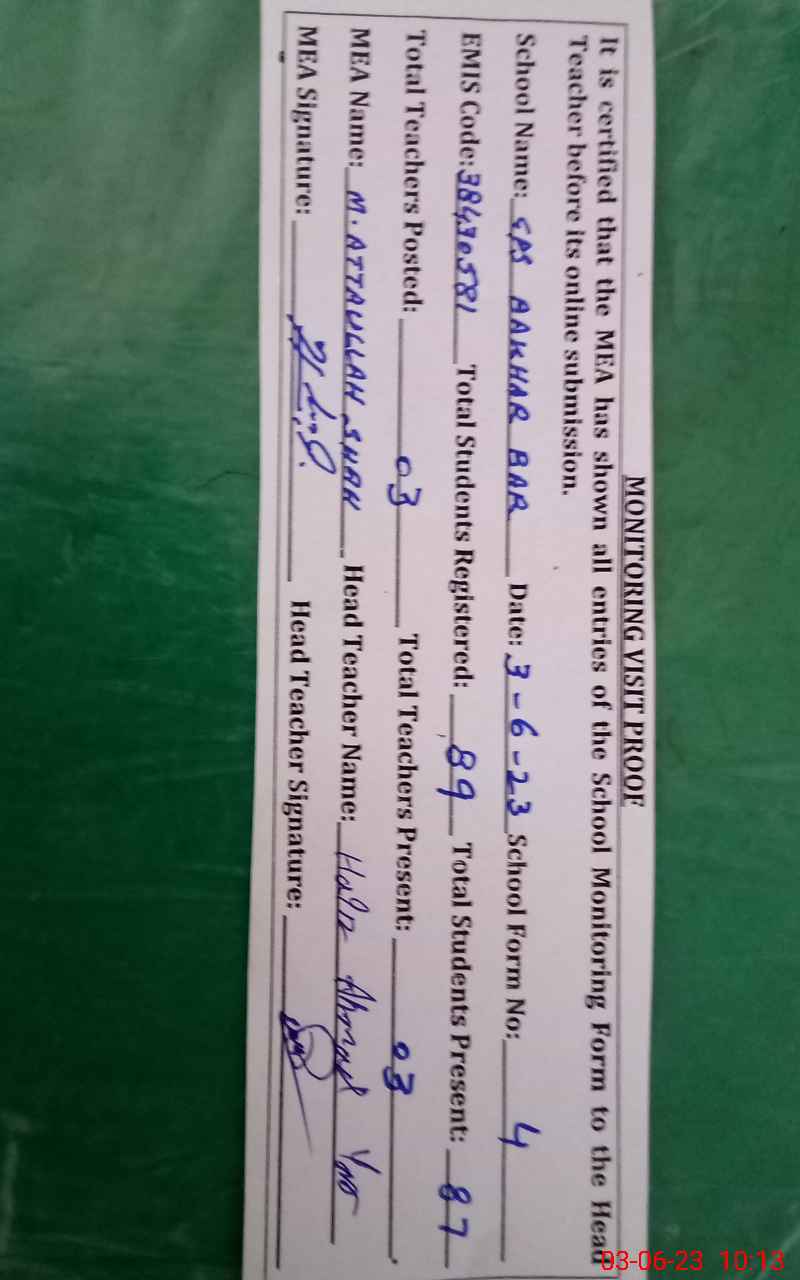 MONITORING VISIT PROOF
It is certified that the MEA has shown all entries of the School Monitoring Form to the Head
Teacher before its online submission.
School Name: GPS AAKHAR BAR Date: 3-6-23 School Form No: 4
EMIS Code: 38430581 Total Students Registered: 89 Total Students Present: 87
Total Teachers Posted: 03 Total Teachers Present: 03
MEA Name: M. ATTAULLAH SHAH Head Teacher Name: Hafiz Ahmad
MEA Signature: Head Teacher Signature:
03-06-23 10:13